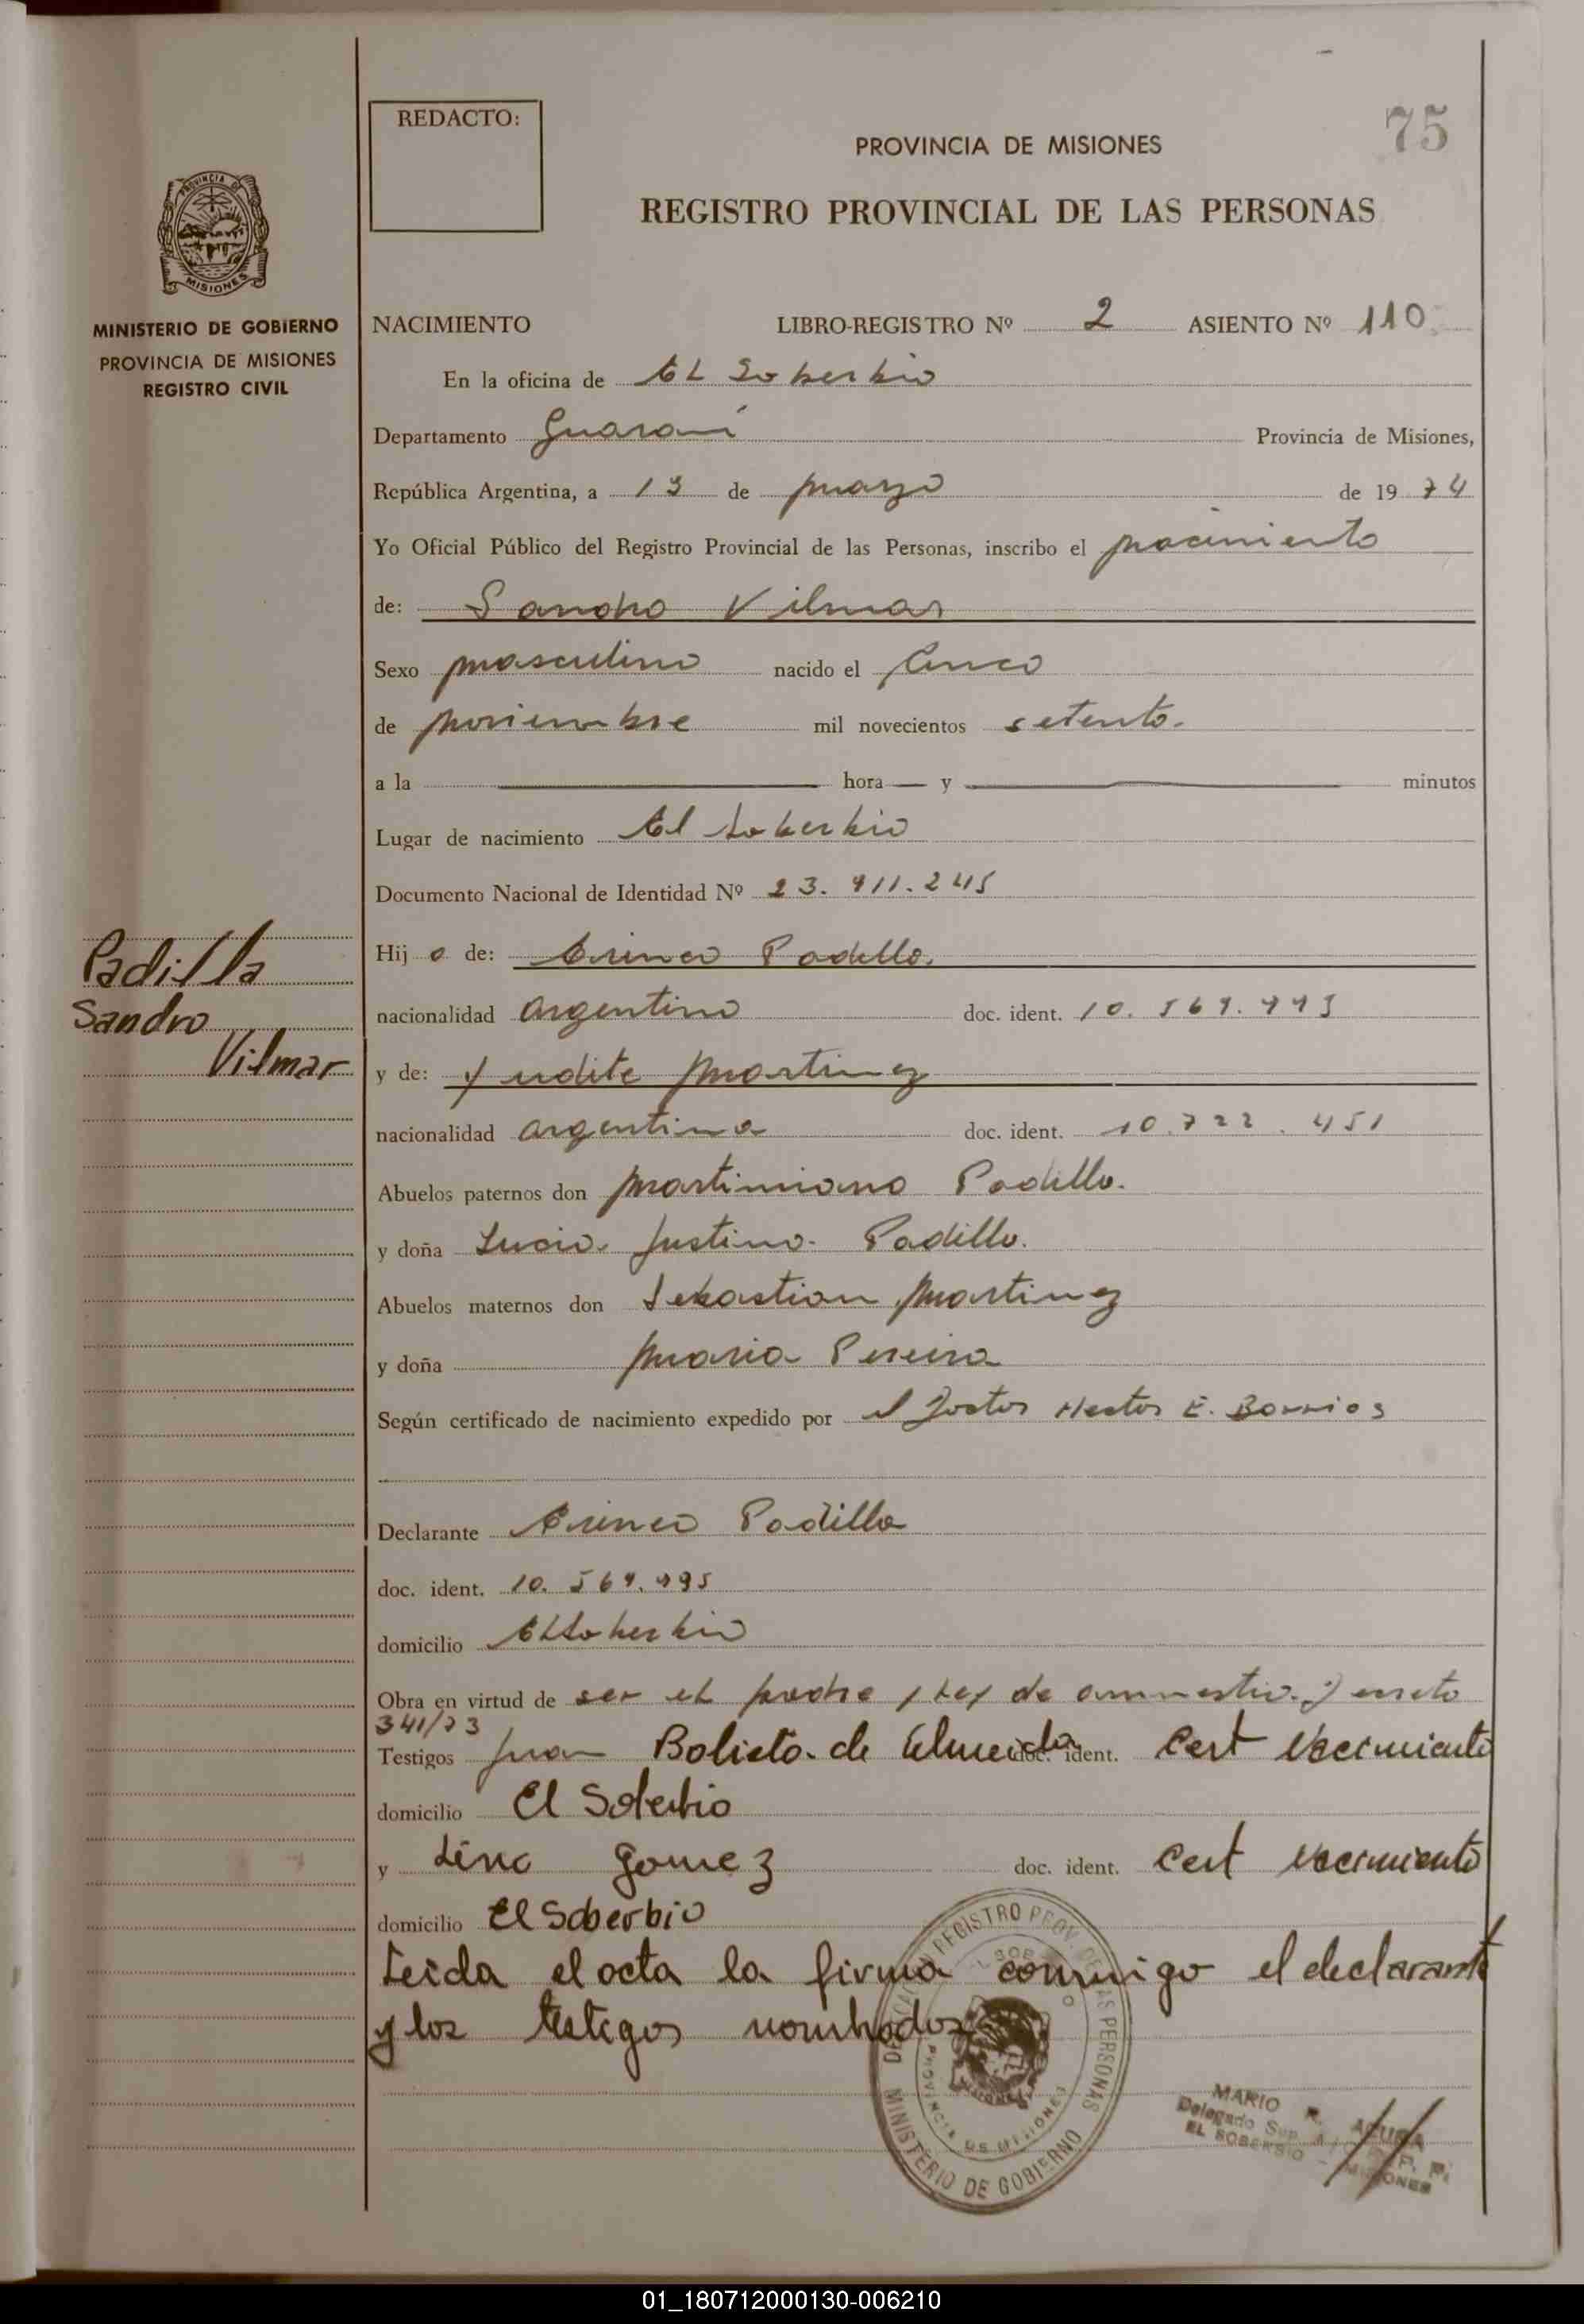 REDACTO:
75
PROVINCIA DE MISIONES
REGISTRO PROVINCIAL DE LAS PERSONAS
PROVINCIA DE
MISIONES
MINISTERIO DE GOBIERNO
PROVINCIA DE MISIONES
REGISTRO CIVIL
NACIMIENTO LIBRO-REGISTRO Nº 2 ASIENTO Nº 110
En la oficina de El Soberbio
Departamento Guaraní Provincia de Misiones,
República Argentina, a 13 de marzo de 1974
Yo Oficial Público del Registro Provincial de las Personas, inscribo el nacimiento
de: Sandro Vilmar
Sexo masculino nacido el cinco
de noviembre mil novecientos setenta.
a la hora y minutos
Lugar de nacimiento El Soberbio
Documento Nacional de Identidad Nº 23.911.245
Padilla
Sandro
Vilmar
Hijo de: Padilla
nacionalidad argentino doc. ident. 10.
y de: Yudite Martinez
nacionalidad argentina doc. ident. 10.722.451
Abuelos paternos don Martimiano Padilla.
y doña Lucia Justina Padilla.
Abuelos maternos don Sebastian Martinez
y doña Maria Pereira
Según certificado de nacimiento expedido por el Doctor Hector E. Barrios
Declarante Padilla
doc. ident. 10.
domicilio El Soberbio
Obra en virtud de ser el padre y ley de amnestia
341/73
Testigos Juan de Almeida doc. ident. Cert Nacimiento
domicilio El Soberbio
y Lino Gomez doc. ident. Cert Nacimiento
domicilio El Soberbio
Leida el acta la firma conmigo el declarante
y los testigos nombrados
REGISTRO PROV. DE LAS PERSONAS
PROVINCIA DE MISIONES
MINISTERIO DE GOBIERNO
MARIO R. ACUÑA
Delegado
EL SOBERBIO - MISIONES
01_180712000130-006210